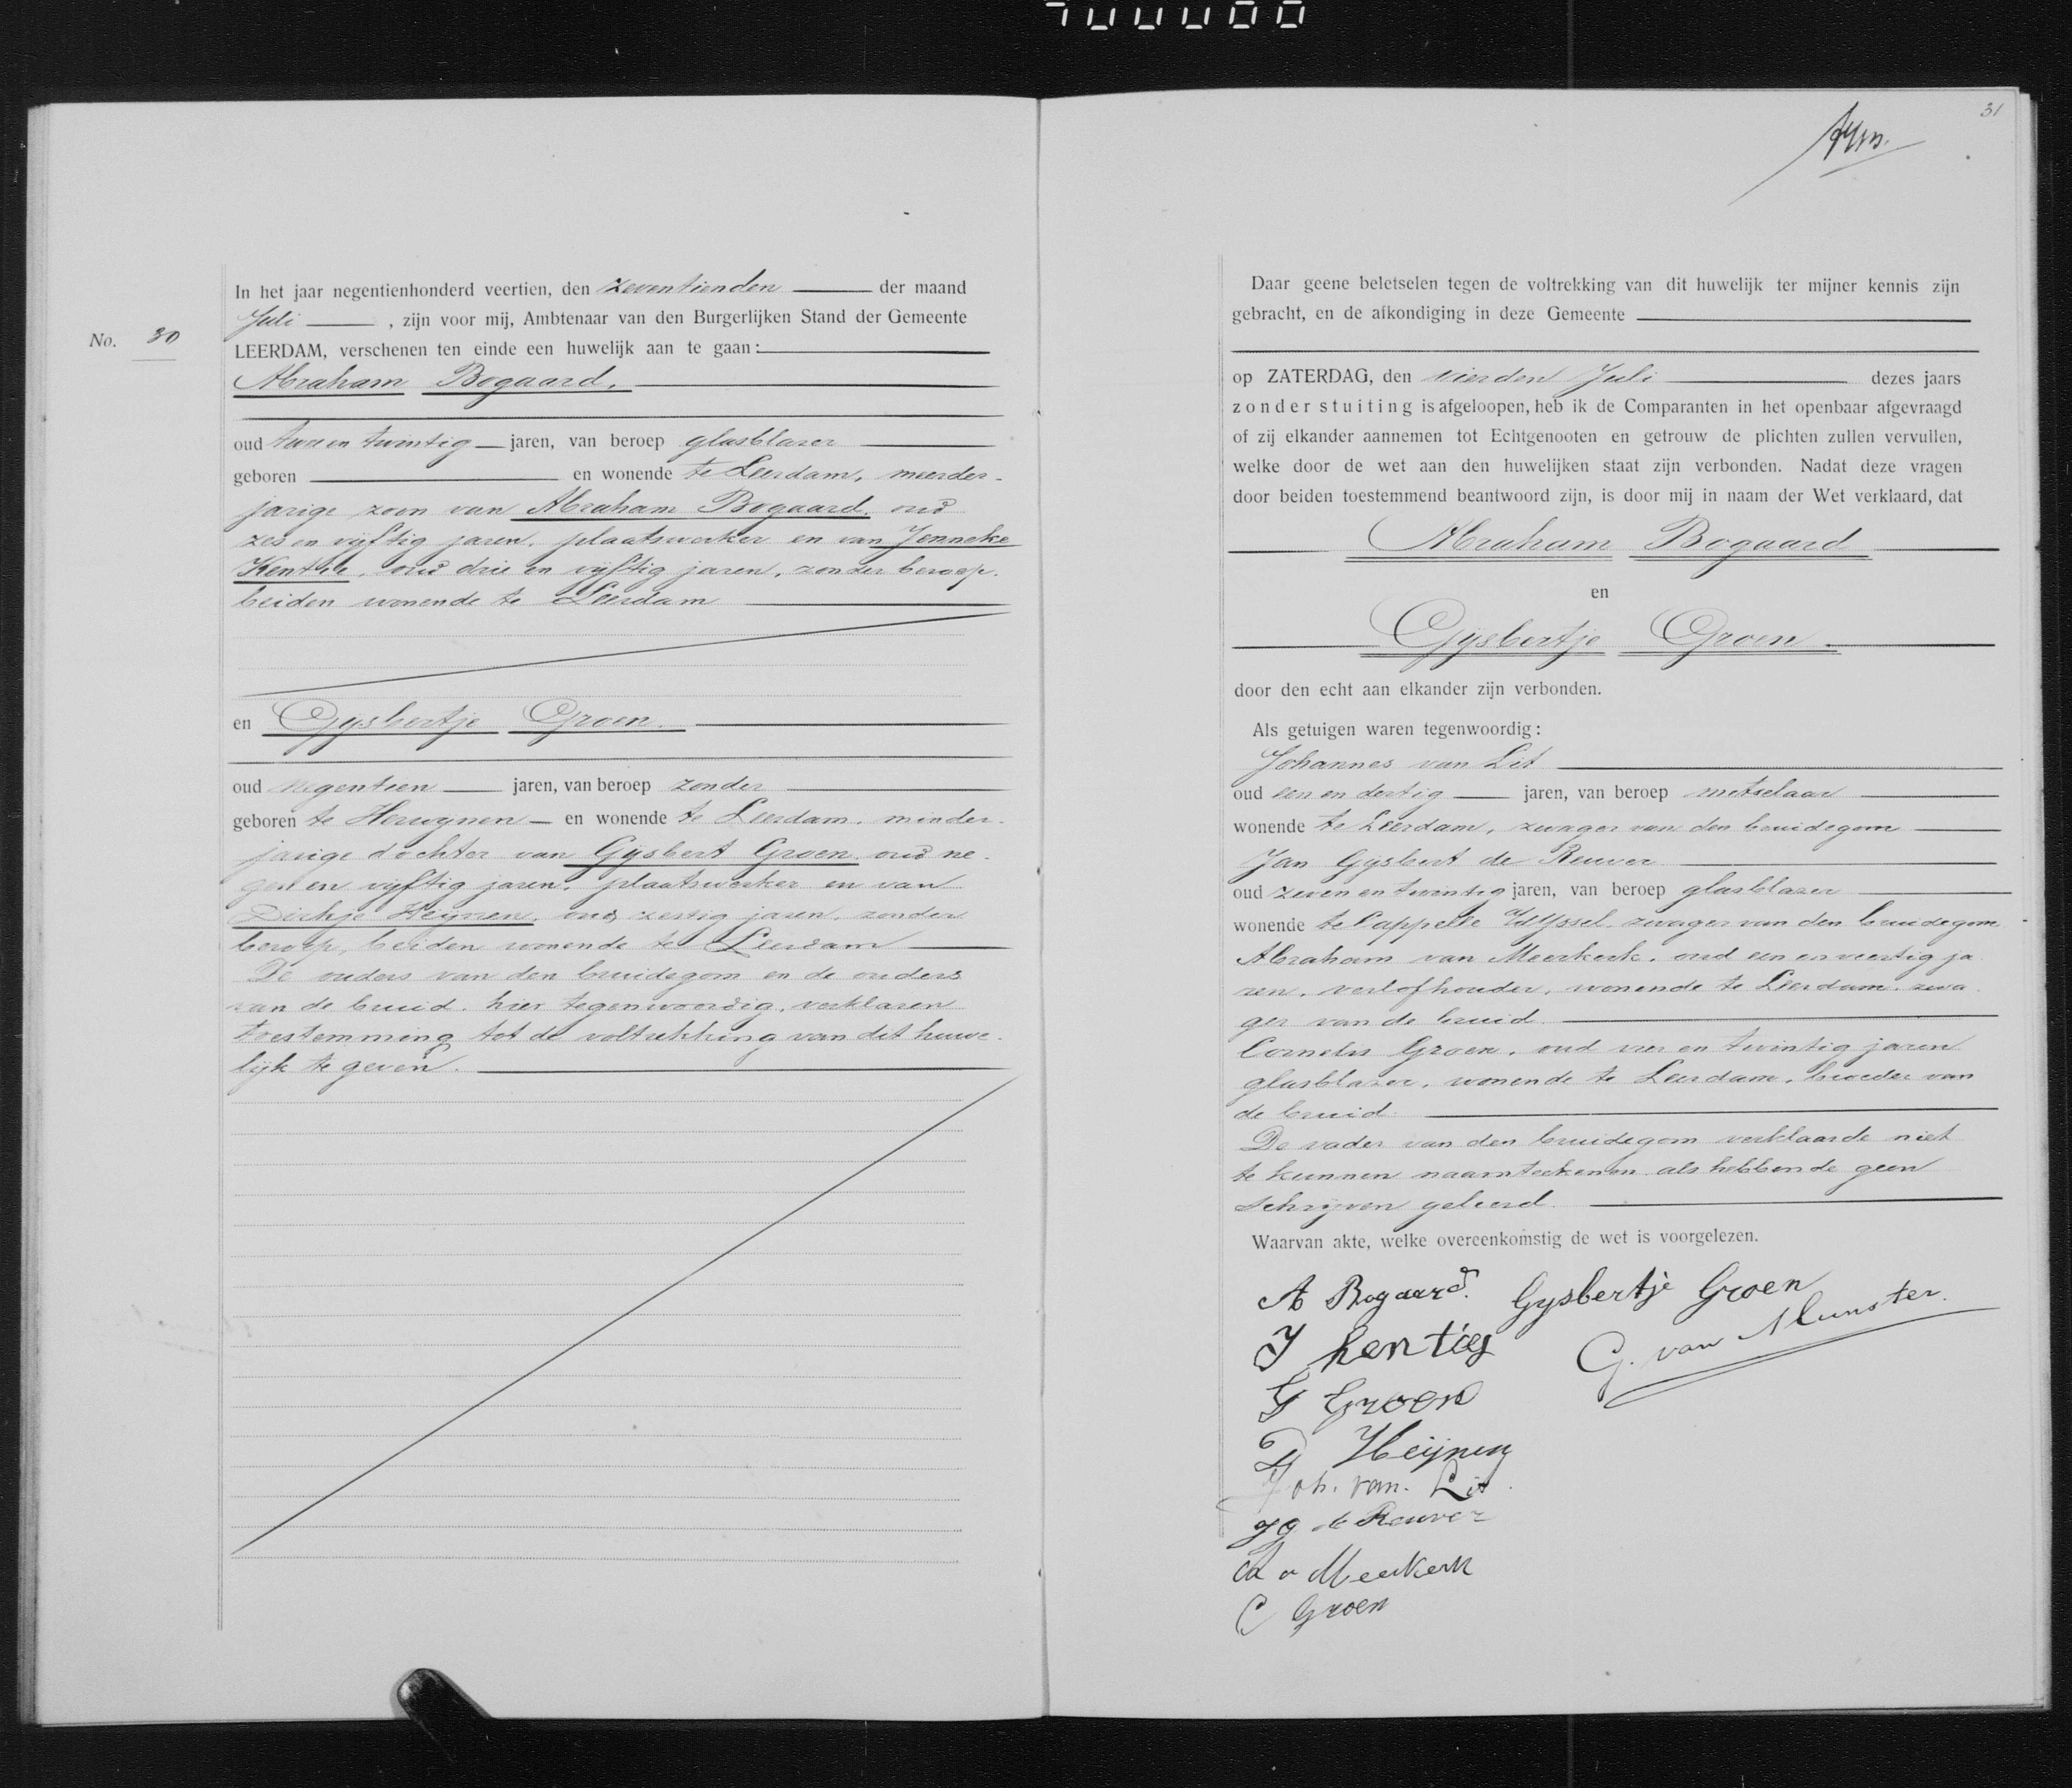 In het jaar negentienhonderd veertien, den zeventienden der maand
Juli, zijn voor mij, Ambtenaar van den Burgerlijken Stand der Gemeente
No. 30
LEERDAM, verschenen ten einde een huwelijk aan te gaan:
Abraham Bogaard,
oud twee en twintig jaren, van beroep glasblazer
geboren en wonende te Leerdam, meerder-
jarige zoon van Abraham Bogaard, oud
zes en vijftig jaren, plaatswerker en van Jenneke
oud drie en vijftig jaren, zonder beroep,
beiden wonende te Leerdam
en Gijsbertje Groen.
oud negentien jaren, van beroep zonder
geboren te Herwynen en wonende te Leerdam, minder-
jarige dochter van Gijsbert Groen, oud ne-
gen en vijftig jaren, plaatswerker en van
Dirkje Heijnen, oud zestig jaren, zonder
beroep, beiden wonende te Leerdam
De ouders van den bruidegom en de ouders
van de bruid, hier tegenwoordig, verklaren
toestemming tot de voltrekking van dit huwe-
lijk te geven.
31
Daar geene beletselen tegen de voltrekking van dit huwelijk ter mijner kennis zijn
gebracht, en de afkondiging in deze Gemeente
op ZATERDAG, den vierden Juli dezes jaars
zonder stuiting is afgeloopen, heb ik de Comparanten in het openbaar afgevraagd
of zij elkander aannemen tot Echtgenooten en getrouw de plichten zullen vervullen,
welke door de wet aan den huwelijken staat zijn verbonden. Nadat deze vragen
door beiden toestemmend beantwoord zijn, is door mij in naam der Wet verklaard, dat
Abraham Bogaard
en
Gijsbertje Groen.
door den echt aan elkander zijn verbonden.
Als getuigen waren tegenwoordig:
Johannes van Lit
oud een en dertig jaren, van beroep metselaar
wonende te Leerdam, zwager van den bruidegom
Jan Gijsbert de Reuver
oud zeven en twintig jaren, van beroep glasblazer
wonende te Cappelle zwager van den bruidegom
Abraham van Meerkerk, oud een en veertig ja-
ren, verlofhouder, wonende te Leerdam, zwa-
ger van de bruid
Cornelis Groen, oud vier en twintig jaren
glasblazer, wonende te Leerdam, broeder van
de bruid
De vader van den bruidegom verklaarde niet
te kunnen naamteekenen als hebbende geen
schrijven geleerd.
Waarvan akte, welke overeenkomstig de wet is voorgelezen.
A Bogaard. Gysbertje Groen
G. van Munster.
G Groen
D Heijnen
Joh. van. Lit
JG de Reuver
A v Meerkerk
C Groen